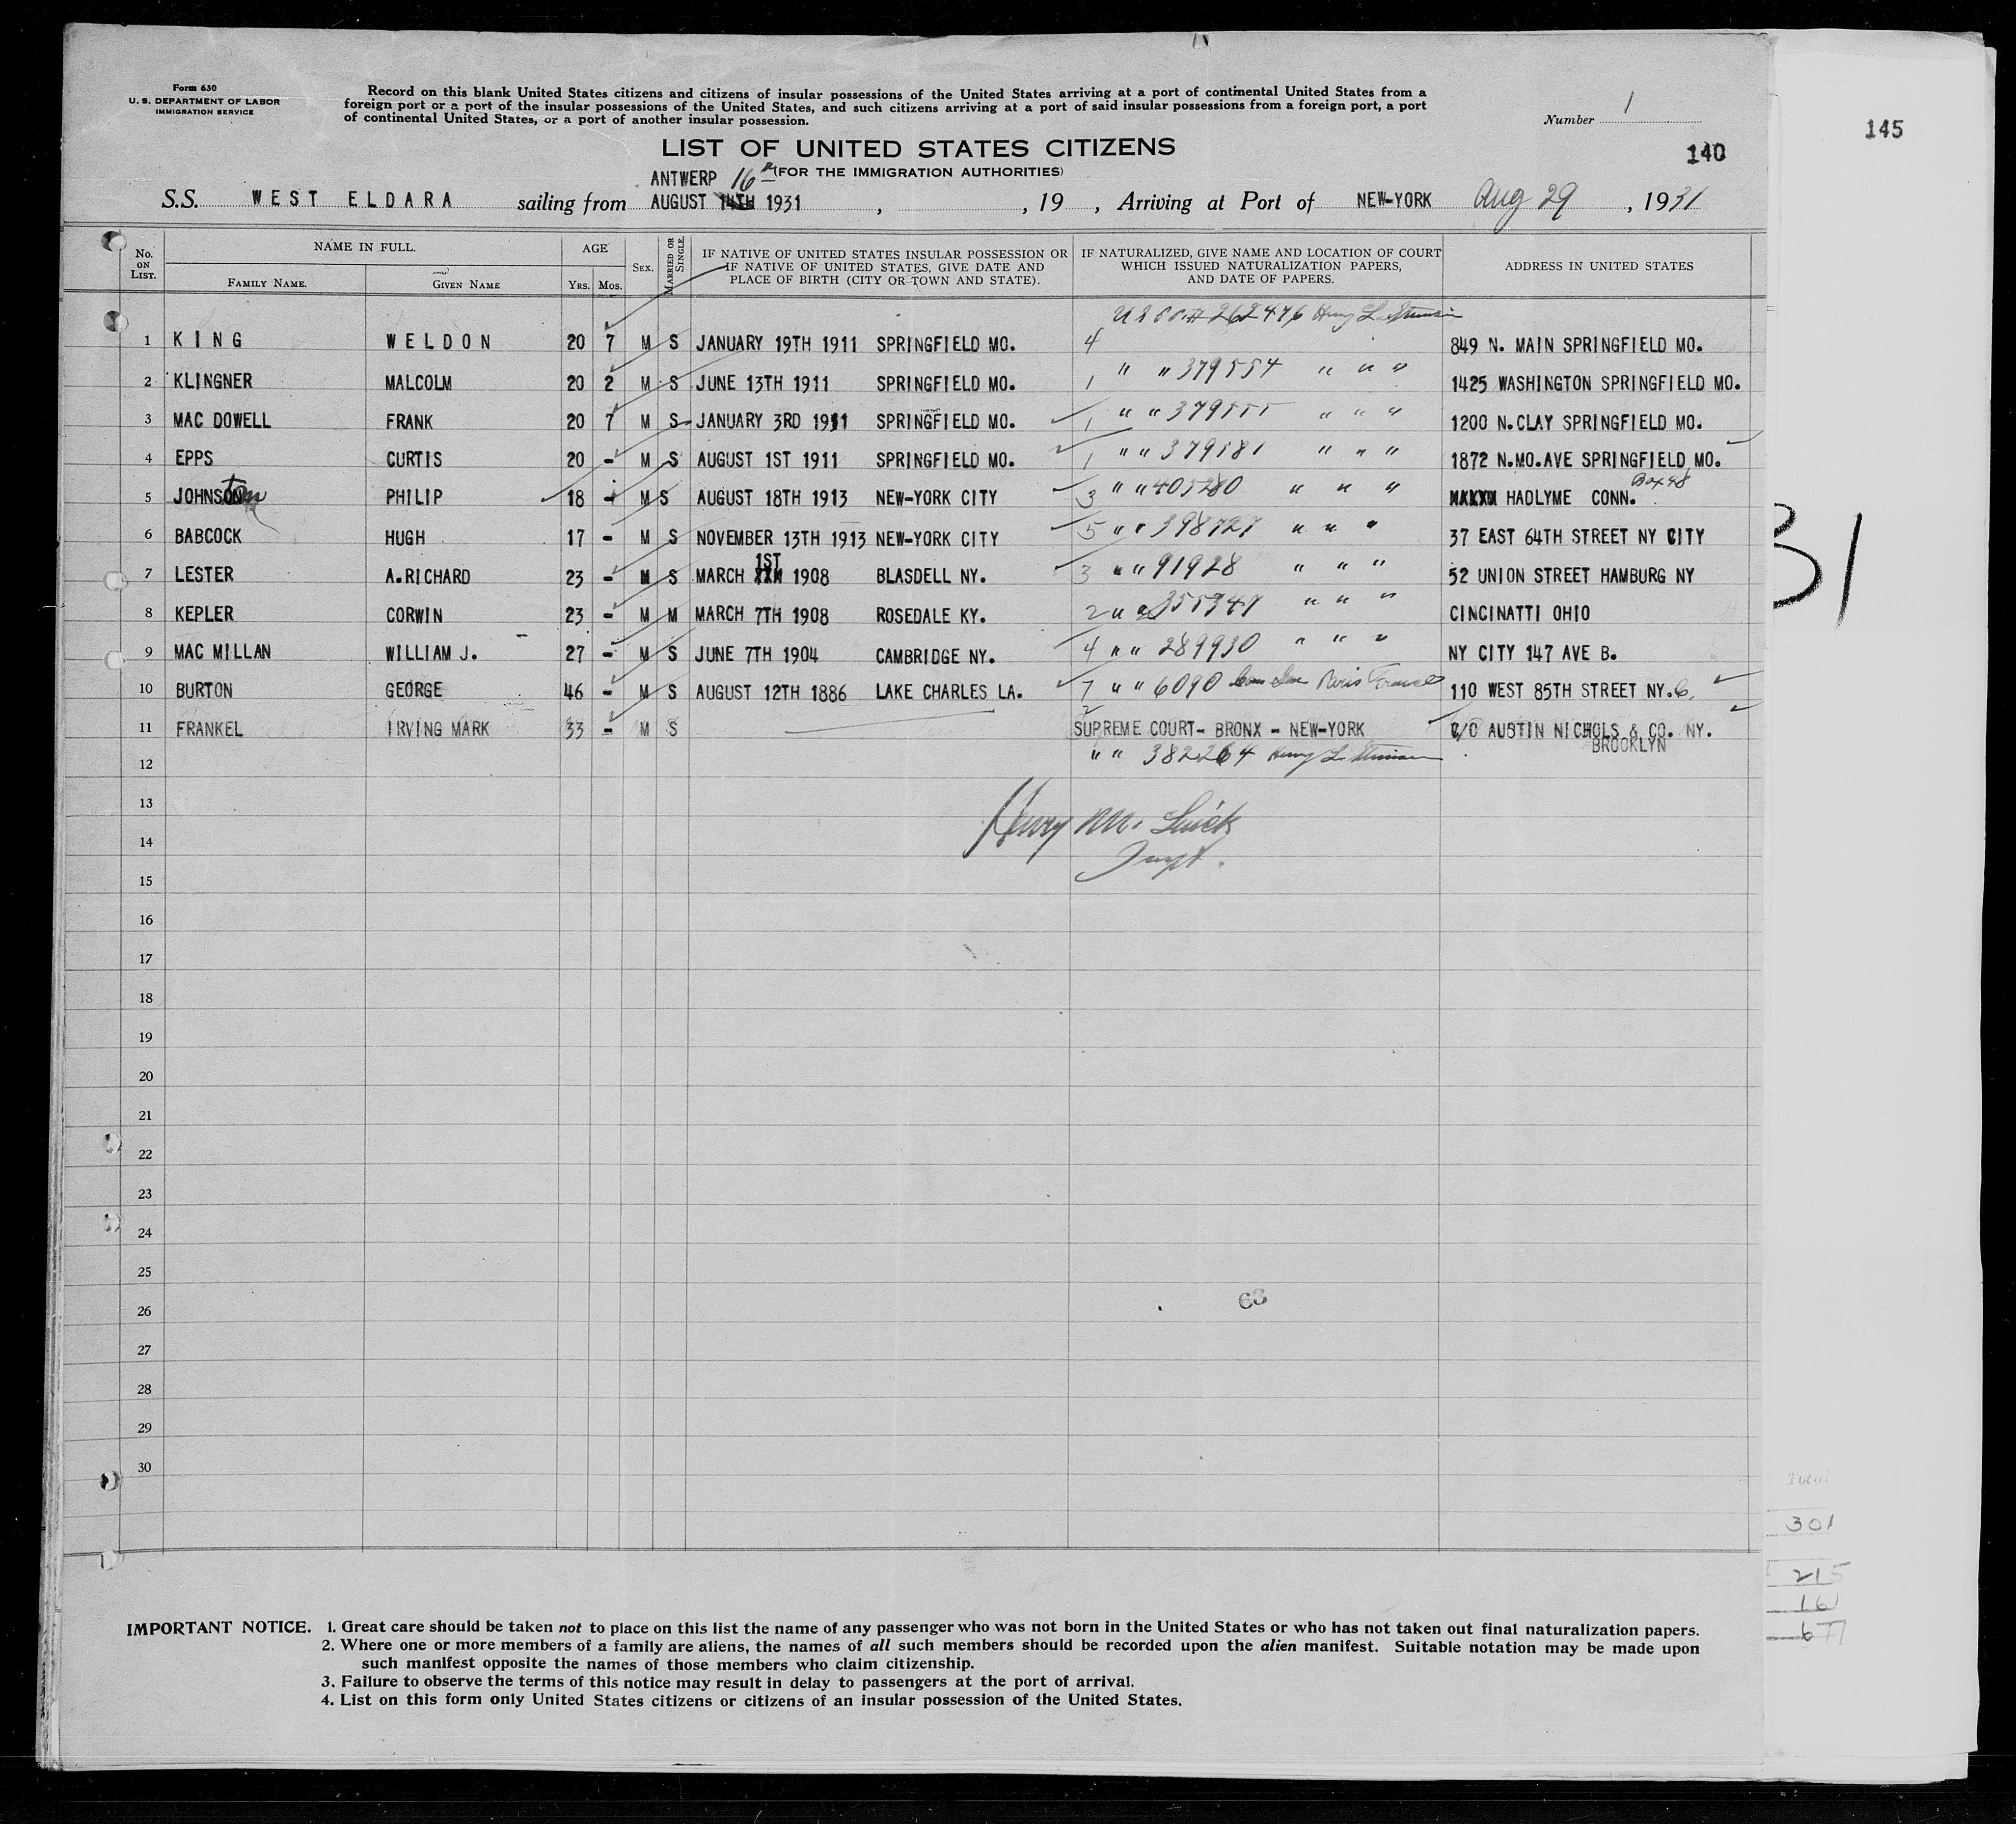 Form 630
U. S. DEPARTMENT OF LABOR
IMMIGRATION SERVICE
Record on this blank United States citizens and citizens of insular possessions of the United States arriving at a port of continental United States from a
foreign port or a port of the insular possessions of the United States, and such citizens arriving at a port of said insular possessions from a foreign port, a port
of continental United States, or a port of another insular possession.
Number 1
145
140
LIST OF UNITED STATES CITIZENS
(FOR THE IMMIGRATION AUTHORITIES)
ANTWERP 16th
S.S. WEST ELDARA sailing from AUGUST 14TH 1931 , , 19 , Arriving at Port of NEW-YORK Aug 29 , 1931
No. ON LIST. NAME IN FULL. FAMILY NAME. GIVEN NAME AGE YRS. MOS. SEX. MARRIED OR SINGLE. IF NATIVE OF UNITED STATES INSULAR POSSESSION OR IF NATIVE OF UNITED STATES, GIVE DATE AND PLACE OF BIRTH (CITY OR TOWN AND STATE). IF NATURALIZED, GIVE NAME AND LOCATION OF COURT WHICH ISSUED NATURALIZATION PAPERS, AND DATE OF PAPERS. ADDRESS IN UNITED STATES
U S P P. # 262476 Henry L. Stimson
1 KING WELDON 20 7 M S JANUARY 19TH 1911 SPRINGFIELD MO. 4 849 N. MAIN SPRINGFIELD MO.
2 KLINGNER MALCOLM 20 2 M S JUNE 13TH 1911 SPRINGFIELD MO. 1 " " 379554 " " " 1425 WASHINGTON SPRINGFIELD MO.
3 MAC DOWELL FRANK 20 7 M S JANUARY 3RD 1911 SPRINGFIELD MO. 1 " " 379555 " " " 1200 N.CLAY SPRINGFIELD MO.
4 EPPS CURTIS 20 - M S AUGUST 1ST 1911 SPRINGFIELD MO. 1 " " 379581 " " " 1872 N.MO.AVE SPRINGFIELD MO.
5 JOHNSTON PHILIP 18 - M S AUGUST 18TH 1913 NEW-YORK CITY 3 " " 405280 " " " HADLYME CONN. Box 48
6 BABCOCK HUGH 17 - M S NOVEMBER 13TH 1913 NEW-YORK CITY 5 " " 398727 " " " 37 EAST 64TH STREET NY CITY
7 LESTER A.RICHARD 23 - M S MARCH 1ST 1908 BLASDELL NY. 3 " " 91928 " " " 52 UNION STREET HAMBURG NY
8 KEPLER CORWIN 23 - M M MARCH 7TH 1908 ROSEDALE KY. 2 " " 355347 " " " CINCINATTI OHIO
9 MAC MILLAN WILLIAM J. 27 - M S JUNE 7TH 1904 CAMBRIDGE NY. 4 " " 289930 " " " NY CITY 147 AVE B.
10 BURTON GEORGE 46 - M S AUGUST 12TH 1886 LAKE CHARLES LA. 7 " " 6090 Paris France 110 WEST 85TH STREET NY.C.
11 FRANKEL IRVING MARK 33 - M S 2 SUPREME COURT- BRONX - NEW-YORK C/O AUSTIN NICHOLS & CO. NY.
BROOKLYN
12 " " 382264 Henry L. Stimson
13
Henry M.
14
Inspt.
15
16
17
18
19
20
21
22
23
24
25
26
63
27
28
29
30
31
Total
301
215
161
677
IMPORTANT NOTICE. 1. Great care should be taken not to place on this list the name of any passenger who was not born in the United States or who has not taken out final naturalization papers.
2. Where one or more members of a family are aliens, the names of all such members should be recorded upon the alien manifest. Suitable notation may be made upon
such manifest opposite the names of those members who claim citizenship.
3. Failure to observe the terms of this notice may result in delay to passengers at the port of arrival.
4. List on this form only United States citizens or citizens of an insular possession of the United States.